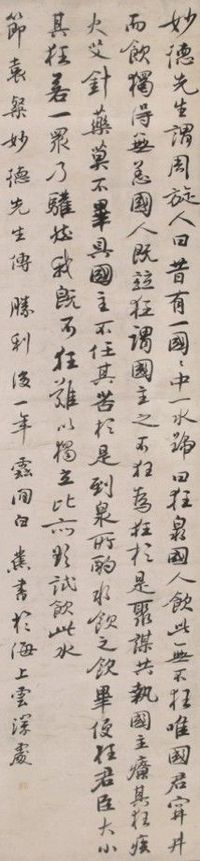 妙德先生謂周旋人曰昔有一國國中一水號曰狂泉國人飲此無不狂唯國君穿井
而飲獨得無恙國人既竝狂謂國主之不狂為狂於是聚謀共執國主療其狂疾
火艾針藥莫不畢具國主不任其苦於是到泉所酌水飲之飲畢便狂君臣大小
其狂若一眾乃驩然我既不狂難以獨立比亦欲試飲此水
節袁粲妙德先生傳 勝利後一年 雲間白蕉書於海上雲深處